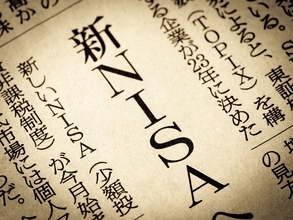 によると、東証
(TOPIX)を構
る企業が23年に決めた
の見方
新NISA
新しいNISA(少額投
非課税制度)が今月始
市場には個人